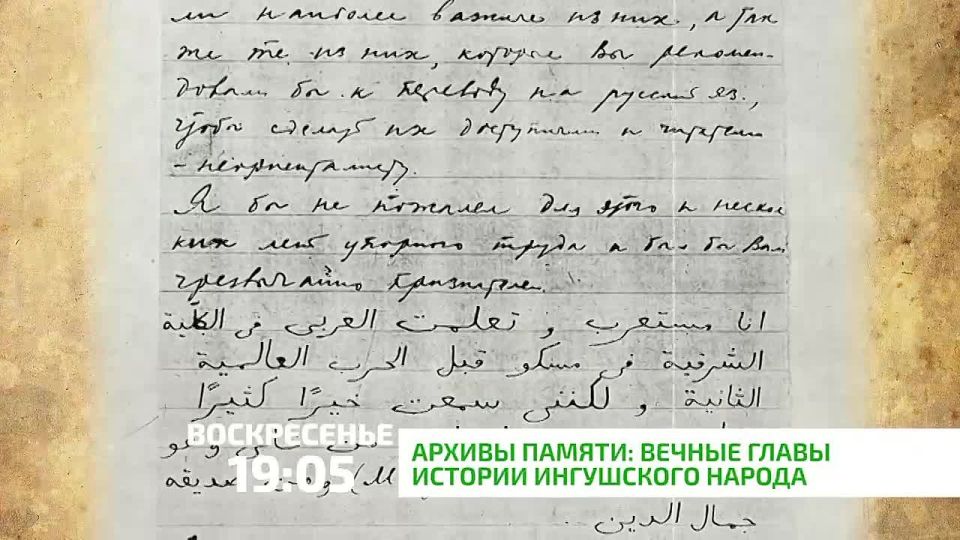 ли наиболее важные из них, а так
же те из них, которые Вы рекомен-
довали бы к переводу на русский яз.,
чтобы сделать их доступными и читателю
- неориенталисту.
Я бы не пожалел для этого и несколь
ких лет упорного труда и был бы Вам
чрезвычайно признателен.
انا مستعرب و تعلمت العربى فى الكلية
الشرقية فى مسكو قبل الحرب العالمية
الثانية و لكننى سمعت خيرًا كثيرًا
جمال الدين
ВОСКРЕСЕНЬЕ
19:05
АРХИВЫ ПАМЯТИ: ВЕЧНЫЕ ГЛАВЫ
ИСТОРИИ ИНГУШСКОГО НАРОДА